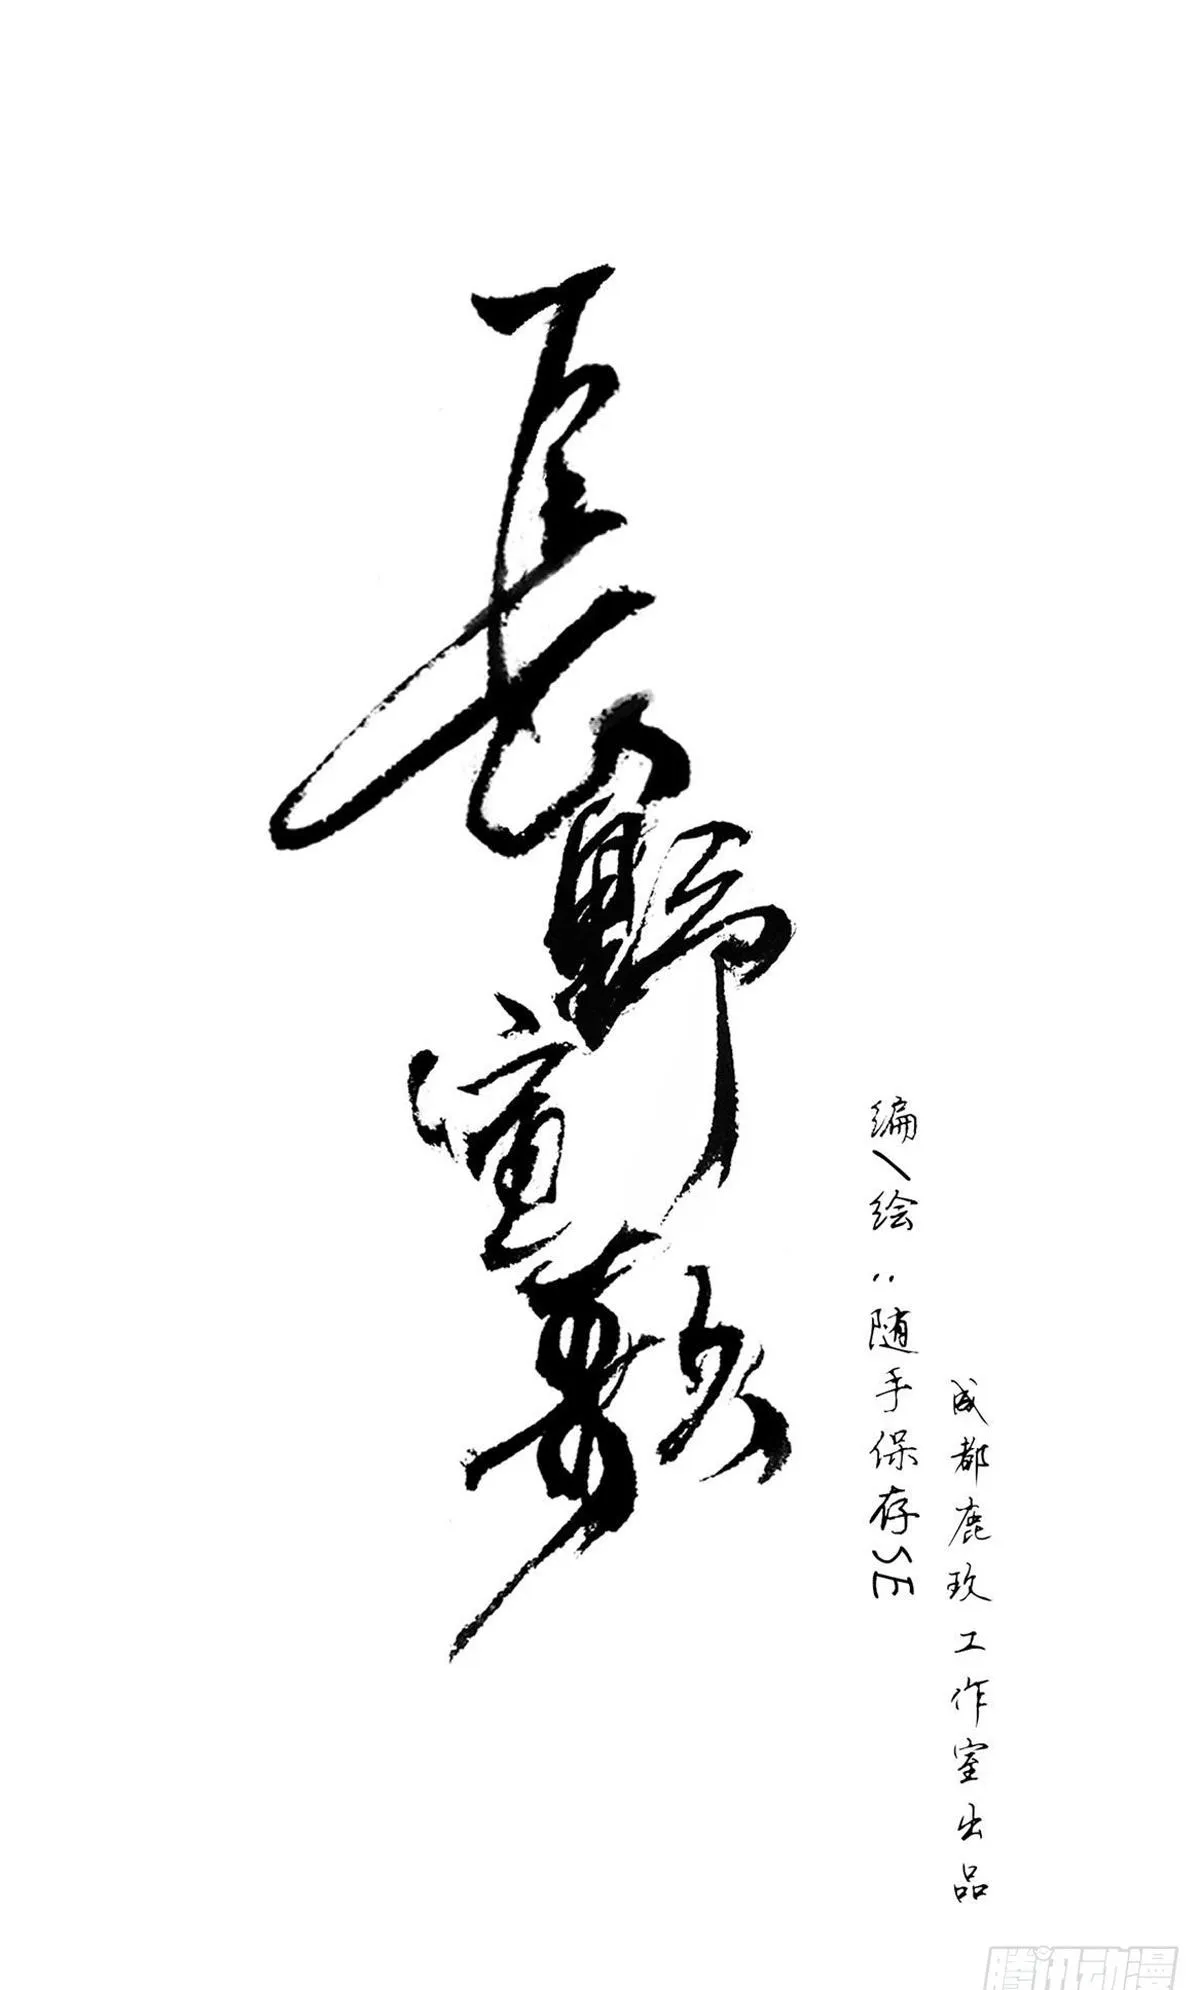 長野萤薮
编/绘：随手保存SE
成都鹿玖工作室出品
腾讯动漫